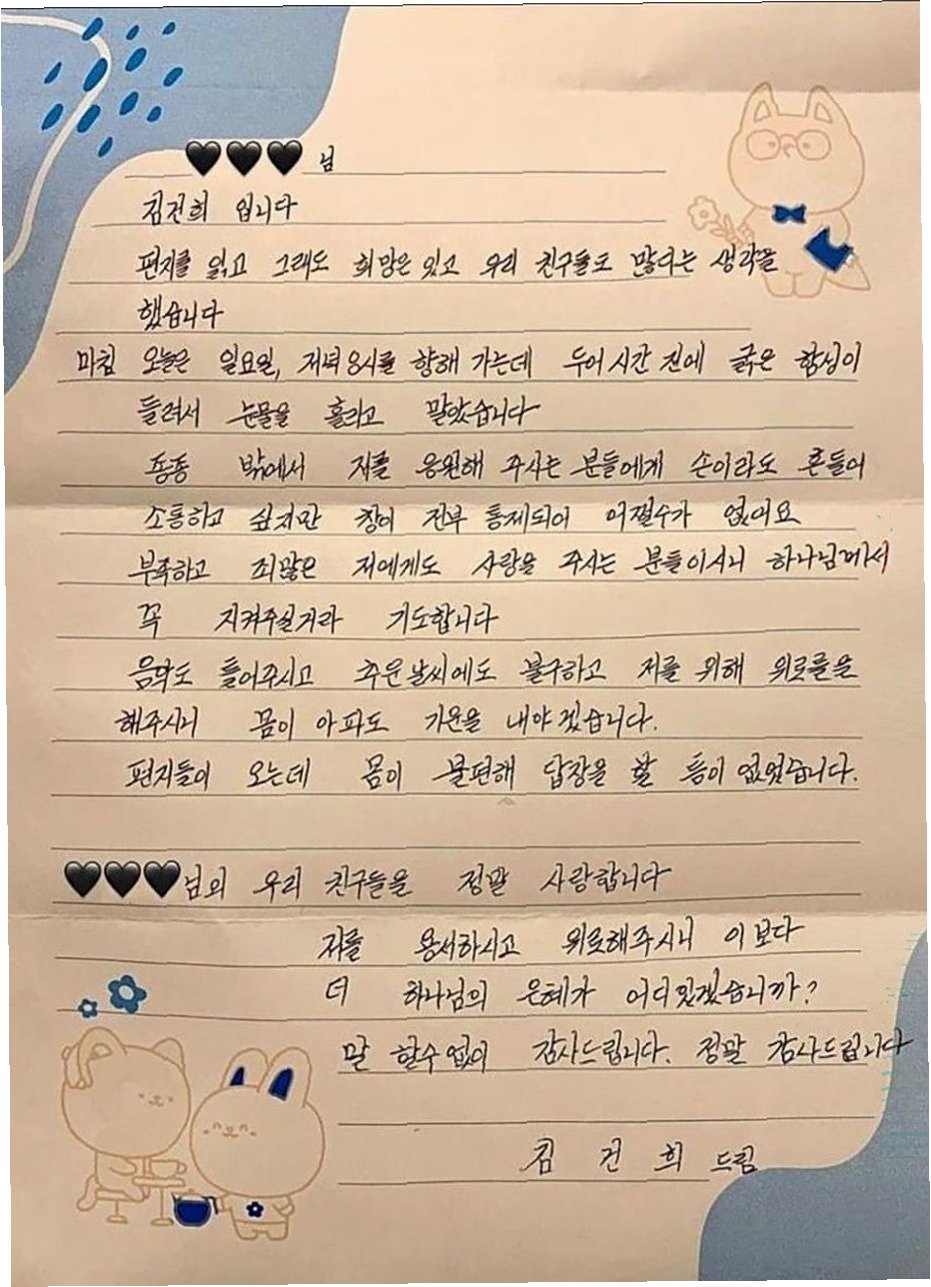 🖤🖤🖤님
김건희 입니다
편지를 읽고 그래도 희망은 있고 우리 친구들도 많다는 생각을
했습니다
마침 오늘은 일요일, 저녁 8시를 향해 가는데 두어 시간 전에 굵은 함성이
들려서 눈물을 흘리고 말았습니다
종종 밖에서 저를 응원해 주시는 분들에게 손이라도 흔들어
소통하고 싶지만 창이 전부 통제되어 어쩔수가 없어요
부족하고 죄많은 저에게도 사랑을 주시는 분들이시니 하나님께서
꼭 지켜주실거라 기도합니다
음악도 틀어주시고 추운날씨에도 불구하고 저를 위해 위로를을
해주시니 몸이 아파도 기운을 내야겠습니다.
편지들이 오는데 몸이 불편해 답장을 할 틈이 없었습니다.
🖤🖤🖤님의 우리 친구들을 정말 사랑합니다
저를 용서하시고 위로해주시니 이보다
더 하나님의 은혜가 어디있겠습니까?
말 할수없이 감사드립니다. 정말 감사드립니다
김 건 희 드림